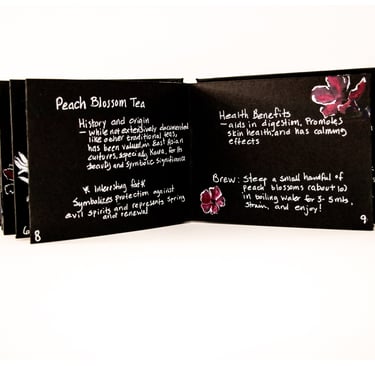 Peach Blossom Tea
History and origin
- while not extensively documented
like other traditional teas,
has been valued in East Asian
cultures, especialy, Korea, for its
beauty and symbolic significance
* Interesting fact *
Symbolizes protection against
evil spirits and represents spring
and renewal
8
Health Benefits
- aids in digestion, Promotes
skin health, and has calming
effects
Brew: Steep a small handful of
peach blossoms (about 10)
in boiling water for 3-5 mts,
strain, and enjoy!
9